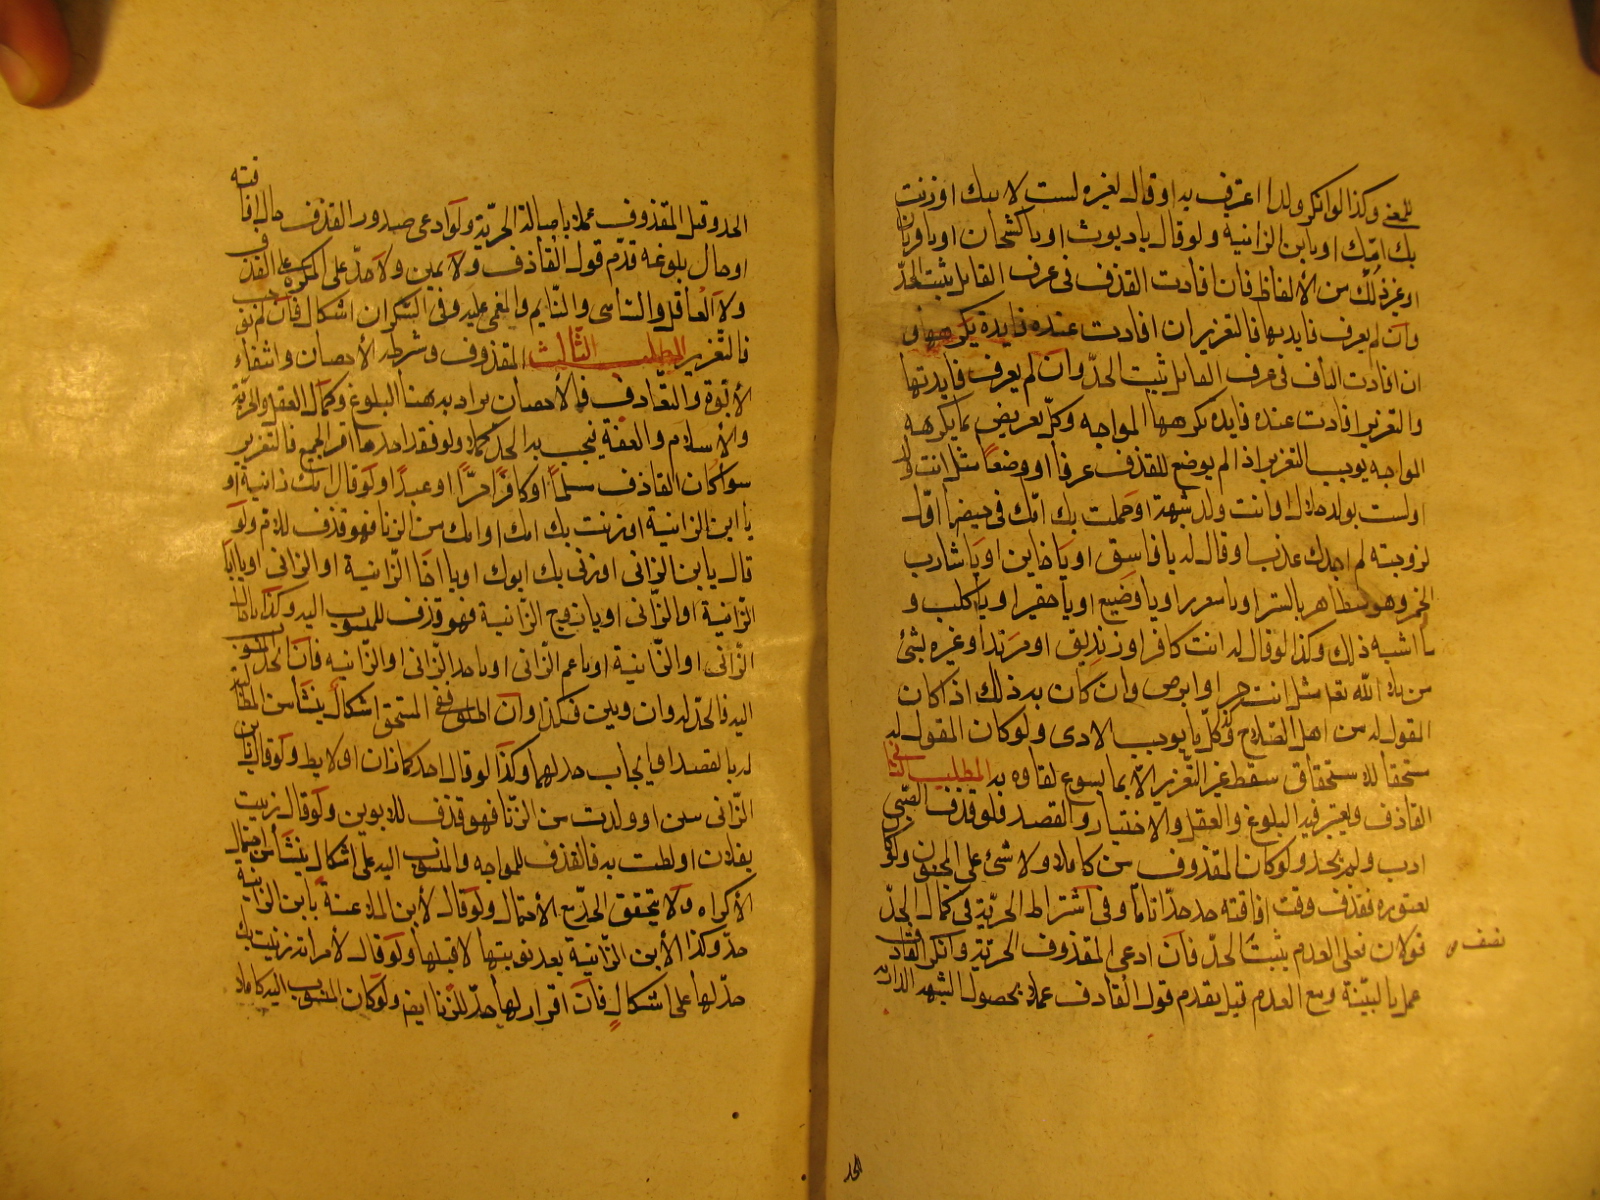 للمعنى وكذا لو انكر ولدا اعترف به او قال لغيره لست لابيك او زنت
بك امك او يا ابن الزانية ولو قال يا ديوث او يا كشخان او يا قرنان
او غير ذلك من الألفاظ فان افادت القذف فى عرف القائل يثبت الحدّ
وان لم يعرف فايدتها فالتعزير ان افادت عنده فايدة يكرهها
ان افادت القذف فى عرف القائل ثبت الحدّ وان لم يعرف فايدتها
والتعزير افادت عنده فايدة يكرهها المواجه وكلّ تعريض بما يكرهه
المواجه يوجب التعزير اذا لم يوضع للقذف عرفا او وضعاً مثل انت ولد
او لست بولد حلال او انت ولد شبهة او حملت بك امّك فى حيضها او قال
لزوجته لم اجدك عذبا او قال له يا فاسق او يا خاين او يا شارب
الخمر وهو متظاهر بالستر او يا وضيع او يا حقير او يا كلب و
ما اشبه ذلك وكذا لو قال له انت كافر او زنديق او مرتد او غيره بشئ
من بلاء الله تعا مثل انت او ابرص وان كان به ذلك اذا كان
المقول له من اهل الصّلاح وكلّ ما يوجب الاذى ولو كان المقول له
مستحقا للاستحقاق سقط التعزير الاّ بما يسوغ لقاوه به المطلب الثانى
القاذف ويعتبر فيه البلوغ والعقل والاختيار والقصد فلو قذف الصّبى
ادب ولم يحد ولو كان المقذوف كاملا ولا شئ على المجنون ولو كان
يعتوره فقذف وقت افاقته حد حدّا تامّا وفى اشتراط الحريّة فى كمال الحدّ
قولان فعلى العدم يثبت الحدّ فان ادعى المقذوف الحريّة وانكر القاذف
نصف
عمل بالبيّنة ومع العدم قيل يقدم قول القاذف عملا بحصول الشبهة الدارئة
الحد
الحد وقيل المقذوف عملا باصالة الحريّة ولو ادعى صدور القذف حال افاقته
او حال بلوغه قدّم قول القاذف ولا يمين ولا حدّ على المكره على القذف
ولا الغافل والنّاسى والنّايم والمغمى عليه وفى السّكران اشكال فان لم نوجب
فالتّعزير المطلب الثّالث المقذوف وشرطه الأحصان وانتفاء
الأبوّة والتقاذف فالأحصان يراد به هنا البلوغ وكمال العقل والحريّة
والأسلام والعفّة فيجب به الحد كملا ولو فقد احدها او الجميع فالتعزير
سوا كان القاذف مسلماً او كافرًا حرّا او عبدًا ولو قال امك زانية او
يا ابن الزانية او زنت بك امك او امك من الزنا فهو قذف للام ولو
قال يا بن الزانى او زنى بك ابوك او يا اخا الزّانية او الزّانى او يا ابا
الزّانية او الزّانى او يا زوج الزّانية فهو قذف للمنسوب اليه وكذا يا خال
الزّانى او الزّانية او يا عم الزّانى او يا جد الزّانى او الزّانيه فان الحدّ للمنسوب
اليه فالحدّ له وان وبين فكذا وان اطلق ففى المستحق اشكال ينشأ من المطالبة
له بالقصد او ايجاب حد لهما وكذا لو قال احدكما زان او لايط ولو قال يا بن
الزّانى من او ولدت من الزّنا فهو قذف للابوين ولو قال زنيت
بفلان او لطت به فالقذف للمواجه والمنسوب اليه على اشكال ينشأ من احتمال
الأكراه ولا يتحقق الحدّ مع الأحتمال ولو قال لأبن الملاعنة يا بن الزّانية
حدّ وكذا الأبن الزّانية بعد توبتها لا قبلها ولو قال لأمراته زنيت بك
حدّ لها على اشكال فان اقرار لها حدّ للزّنا ايضا ولو كان المنسوب اليه كاملا